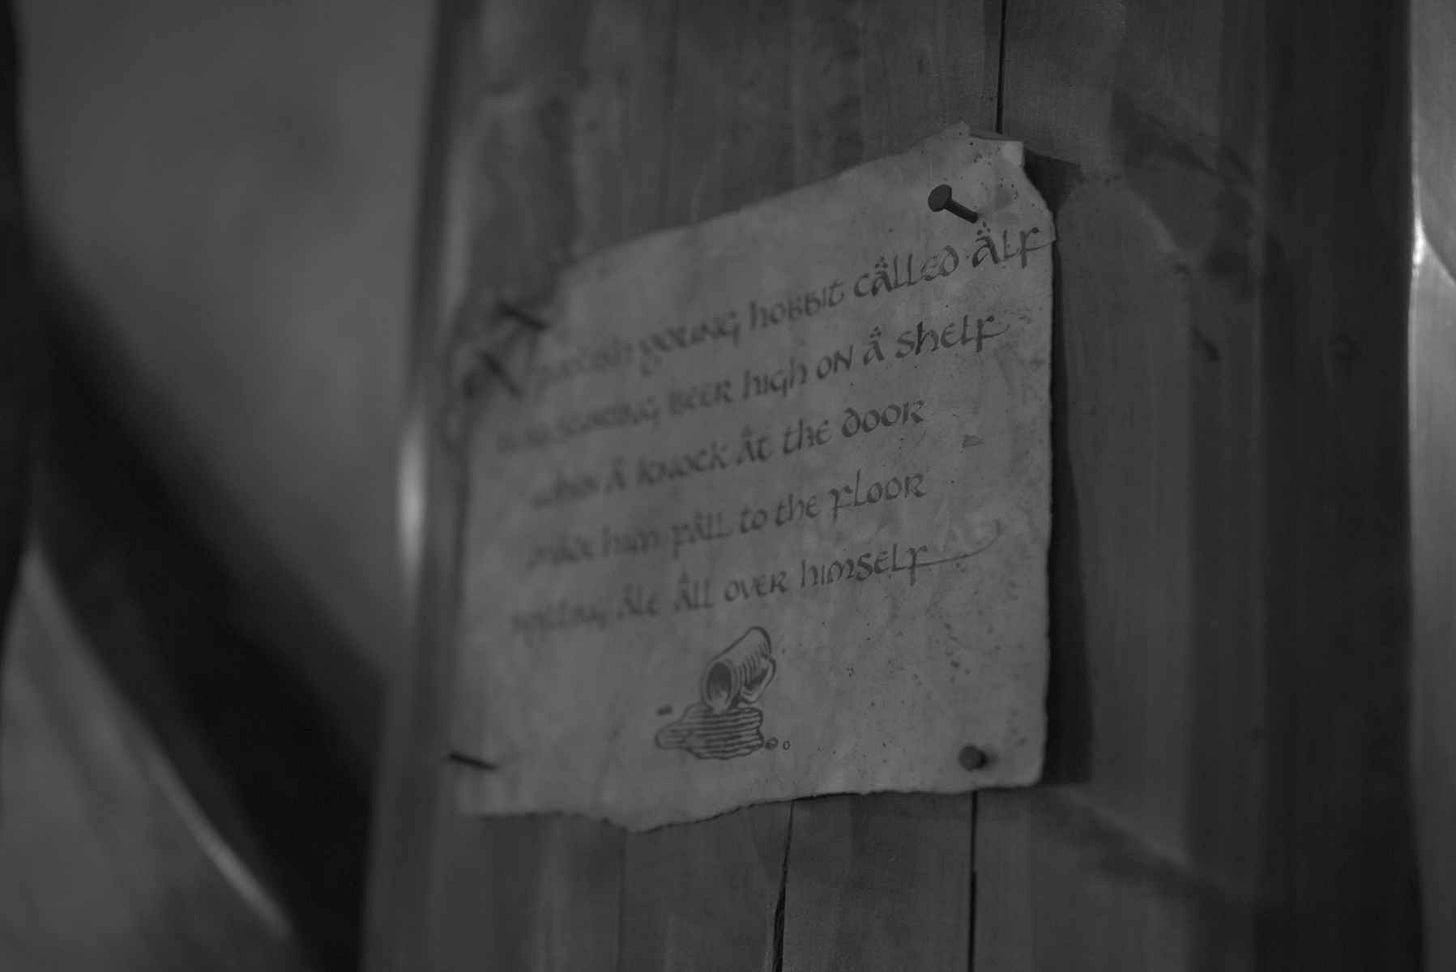 young hobbit câlled Âlf
beer high on â shelf
â knock ât the door
him fâll to the floor
âle âll over himself